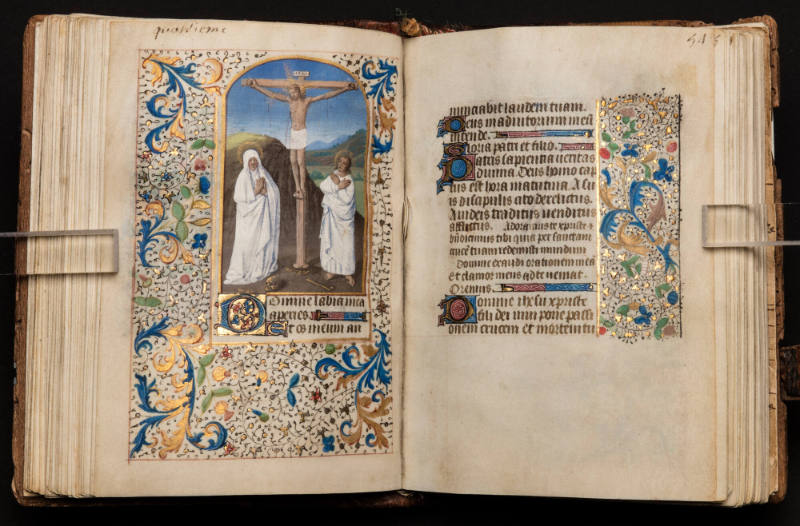 Domine labia mea
aperies
Et os meum an
nunciabit laudem tuam.
Deus in adiutorium meu
intende.
Gloria patri et filio.
Patris sapientia ueritas
diuina. Deus homo cap
tus est hora matutina. A su
is discipulis cito derelictus.
A iudeis traditus uenditus
afflictus. Adoramus te xpriste &
bndicimus tibi quia per sanctam
crucem tuam redemisti mundum
Domine exaudi orationem mea
et clamor meus ad te veniat.
Oremus.
Domine ihesu xpriste
fili dei uiui pone passi
onem crucem et mortem tu